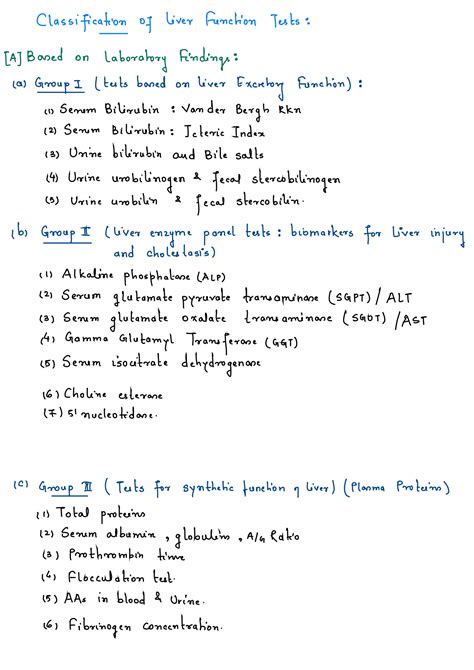 Classification of Liver Function Tests:
[A] Based on Laboratory Findings:
(a) Group I (tests based on Liver Excretory Function):
(1) Serum Bilirubin : Van der Bergh Rxn
(2) Serum Bilirubin : Icteric Index
(3) Urine bilirubin and Bile salts
(4) Urine urobilinogen & fecal stercobilinogen
(5) Urine urobilin & fecal stercobilin.
(b) Group II (Liver enzyme panel tests : biomarkers for Liver injury
and cholestasis)
(1) Alkaline phosphatase (ALP)
(2) Serum glutamate pyruvate transaminase (SGPT) / ALT
(3) Serum glutamate oxalate transaminase (SGOT) / AST
(4) Gamma Glutamyl Transferase (GGT)
(5) Serum isocitrate dehydrogenase
(6) Choline esterase
(7) 5' nucleotidase.
(C) Group III (Tests for synthetic function of Liver) (Plasma Proteins)
(1) Total proteins
(2) Serum albumin, globulins, A/G Ratio
(3) Prothrombin time
(4) Flocculation test.
(5) AAs in blood & Urine.
(6) Fibrinogen concentration.